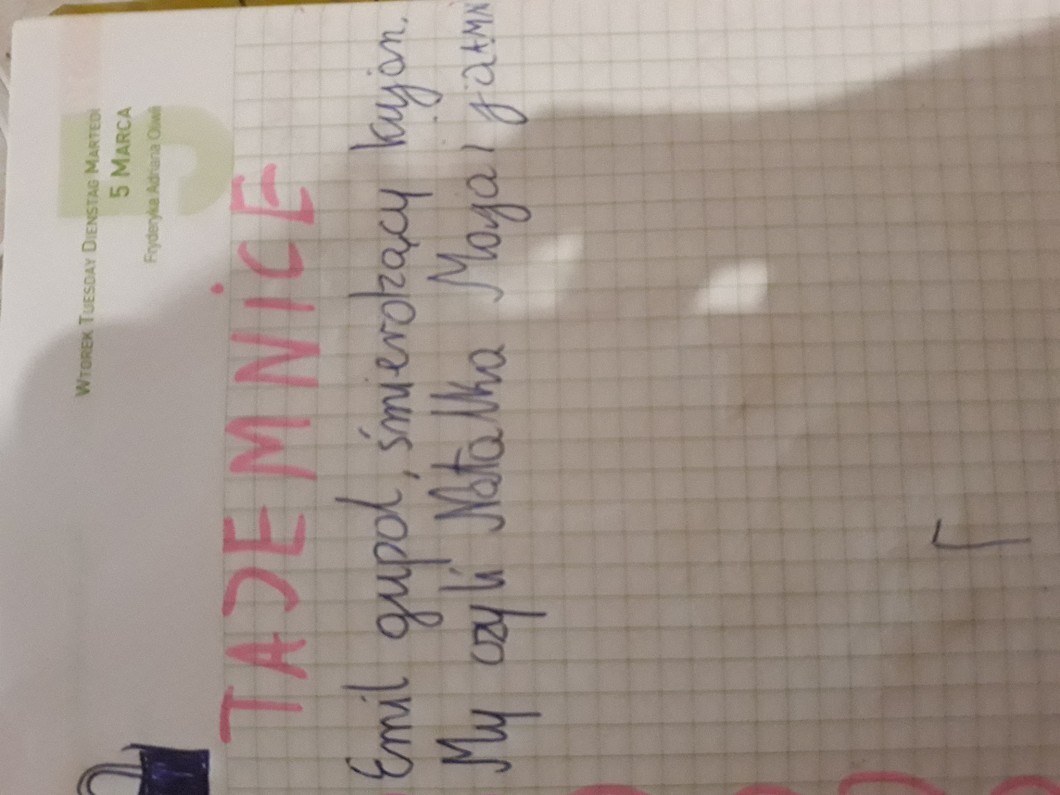 WTOREK TUESDAY DIENSTAG MARTEDI
5 MARCA
5
Fryderyka Adriana Oliwii
TAJEMNICE
Emil gupol, śmierdzący kujon.
My czyli Natalka Maja i ja